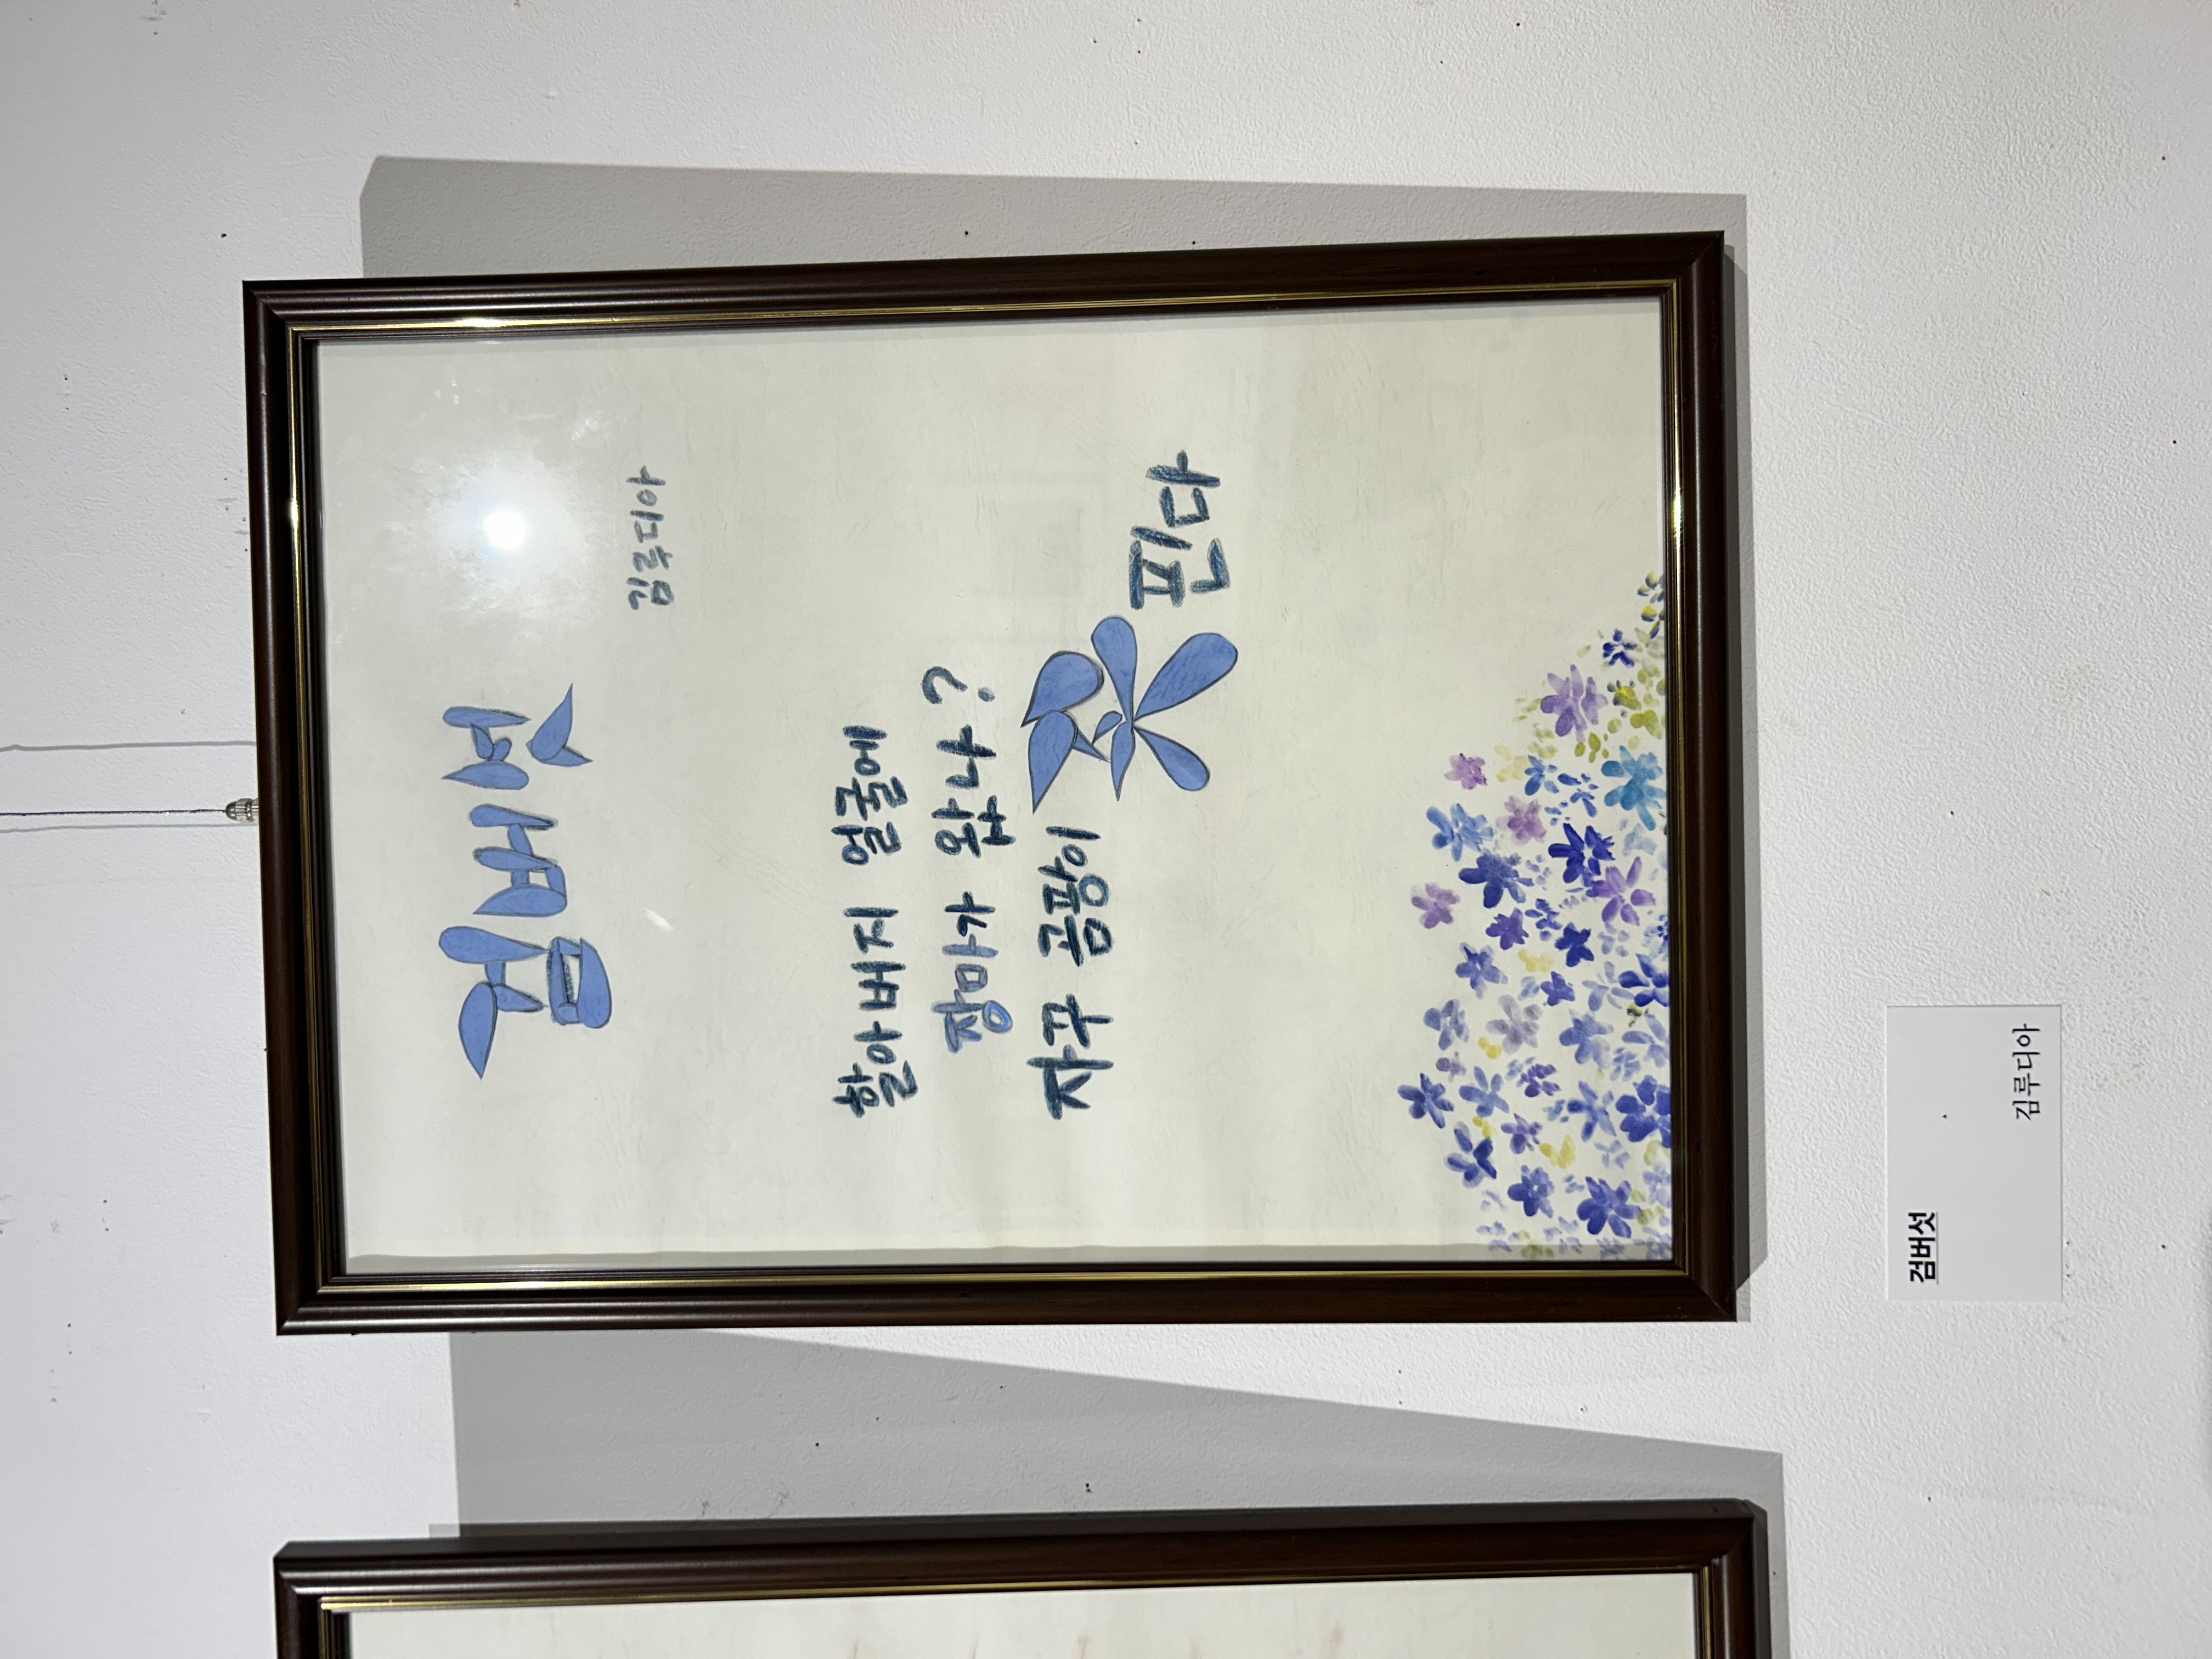 검버섯
김루디아
할아버지 얼굴에
장마가 왔나?
자꾸 곰팡이 꽃 핀다
검버섯
김루디아